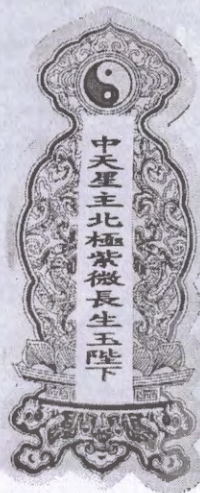 中天星主北極紫微長生玉陛下